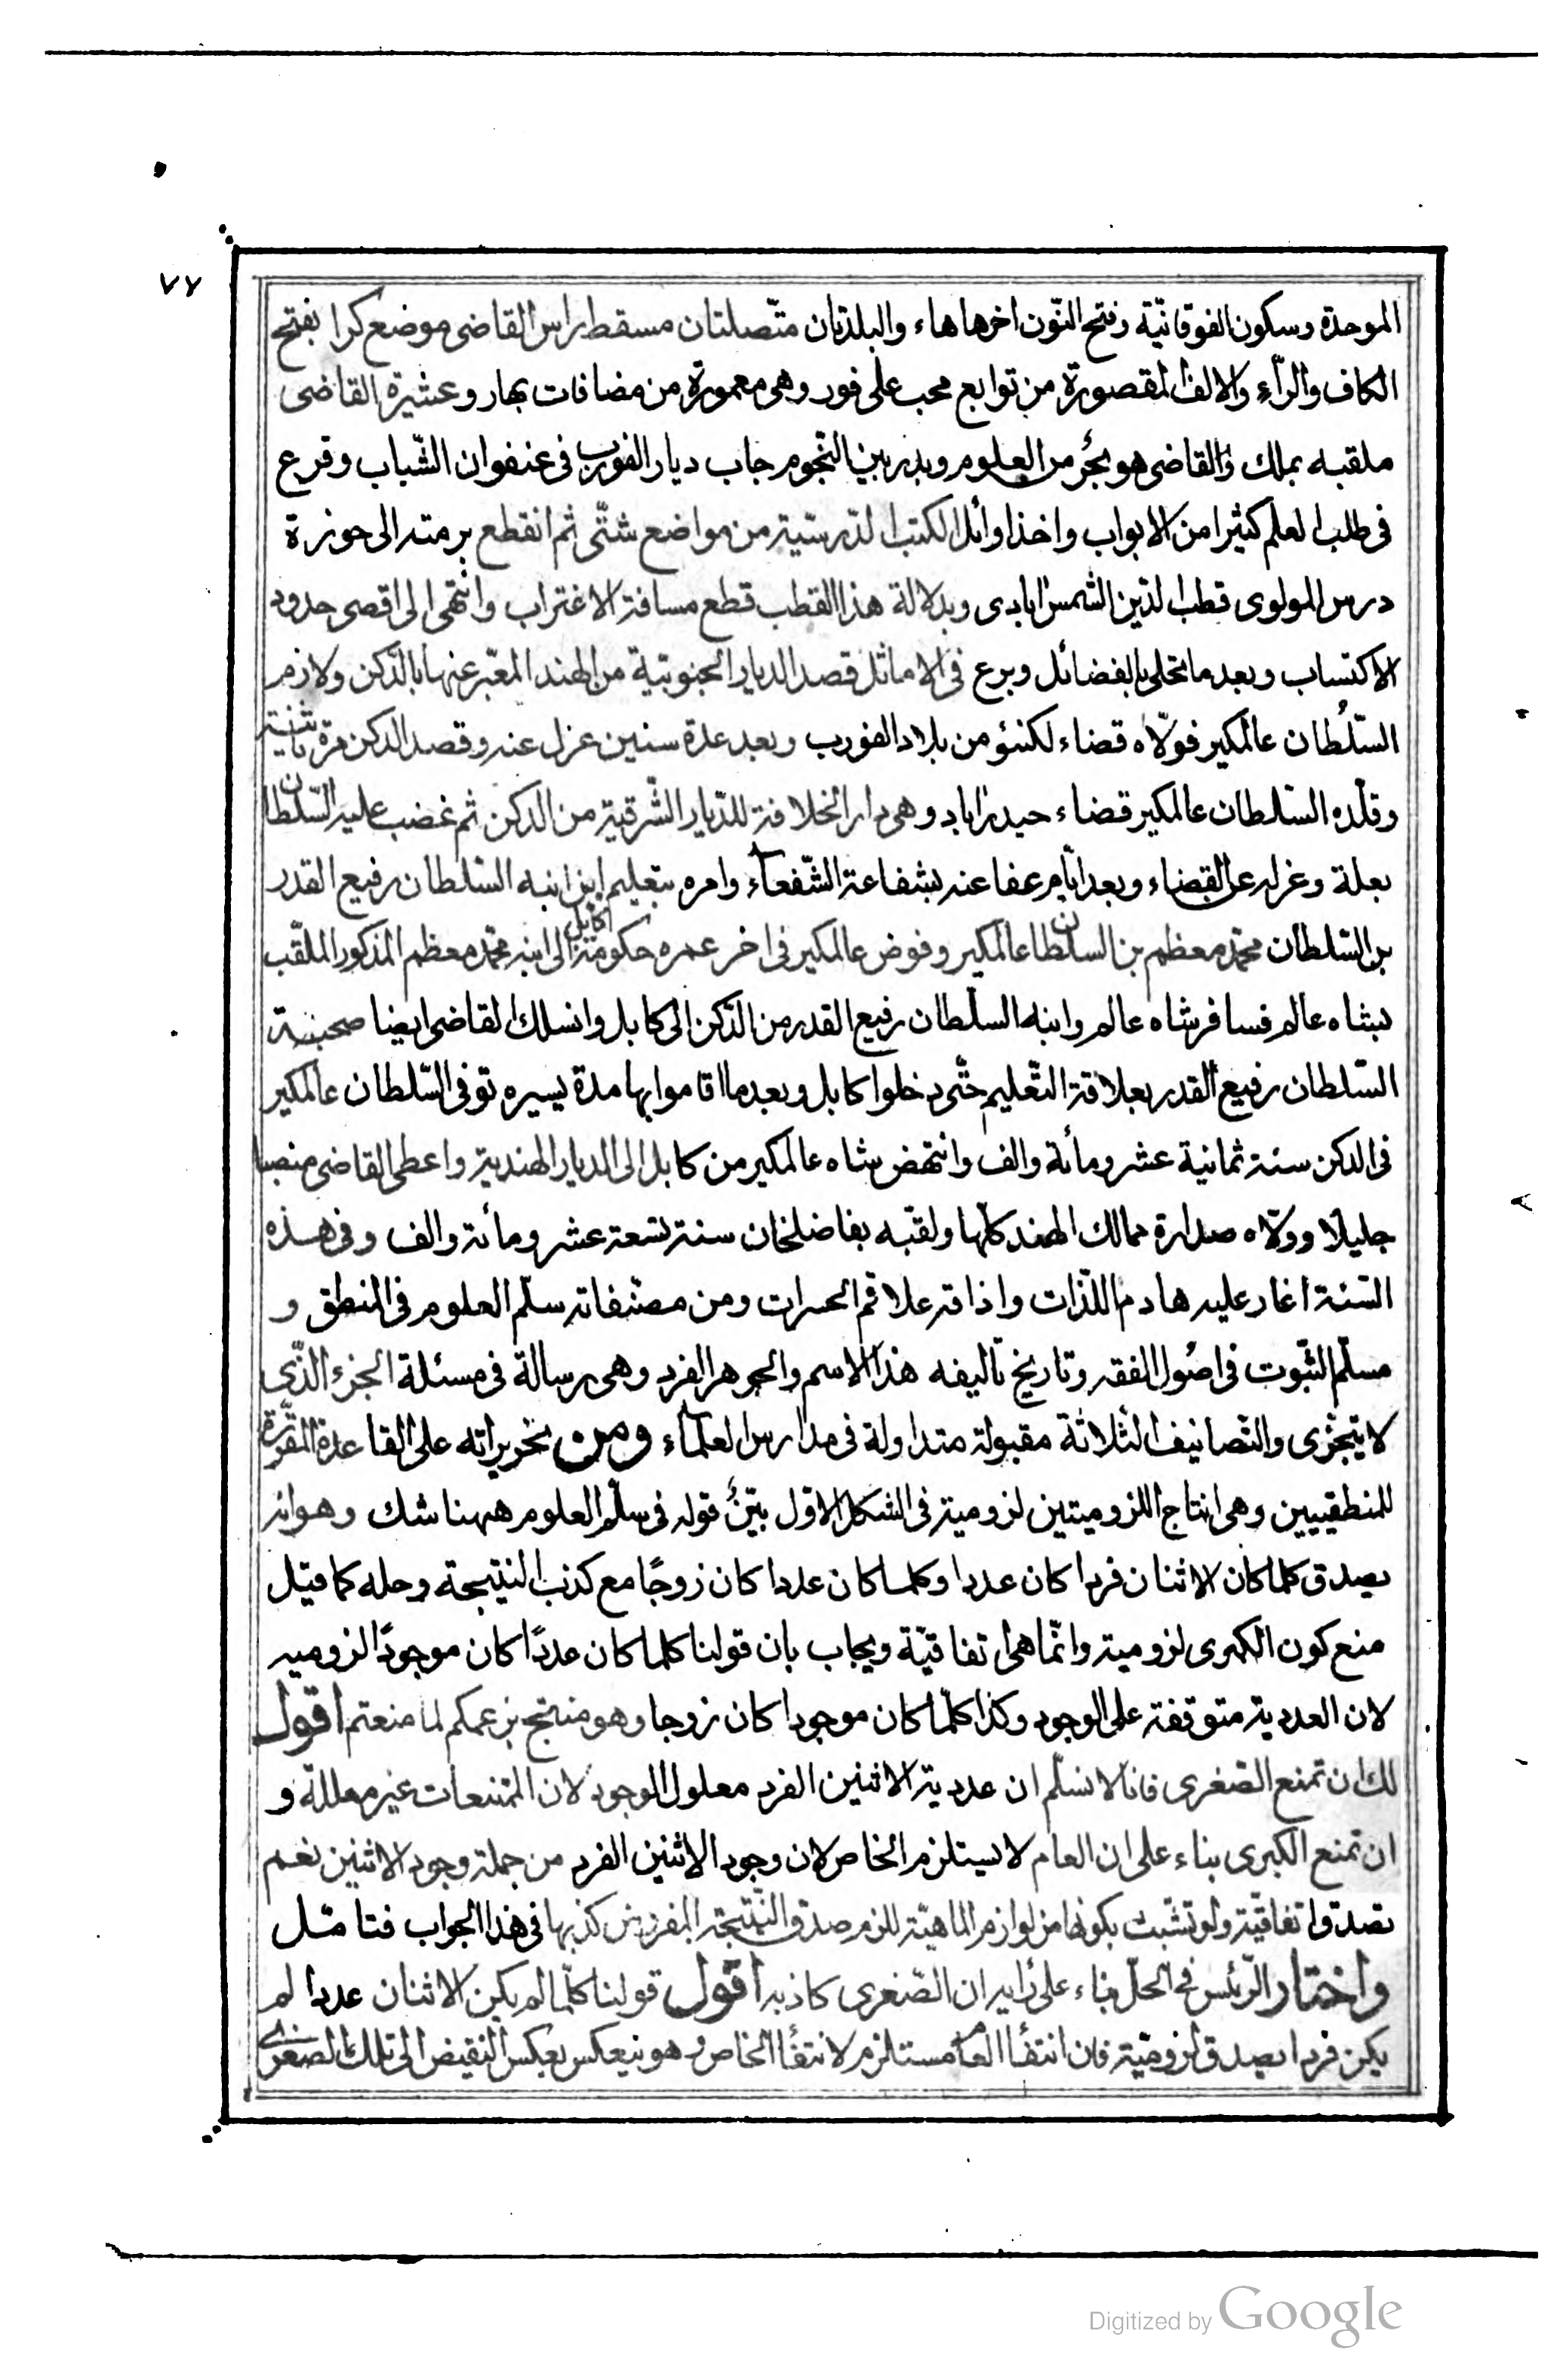 ٧٧
الموحدة وسكون الفوقانيّة وفتح النّون اخرها هاء والبلدتان متّصلتان مسقط راس القاضى موضع كرا بفتح
الكاف والرّاء والالف المقصورة من توابع محب على فور وهى معمورة من مضافات بهار وعشيرة القاضى
ملقبه بملك والقاضى هو بحر من العلوم وبدر بين النّجوم جاب ديار الفورب فى عنفوان الشّباب وقرع
فى طلب العلم كثيرا من الابواب واخذ اوائل الكتب الدّرسيّة من مواضع شتّى ثم انقطع برمته الى حوزة
درس المولوى قطب الدّين الشمس ابادى وبدلالة هذا القطب قطع مسافة الاغتراب وانتهى الى اقصى حدود
الاكتساب وبعد ما تحلى بالفضائل وبرع فى الاماثل قصد الديار الجنوبيّة من الهند المعبّر عنها بالدّكن ولازم
السّلطان عالمكير فولّاه قضاء لكنئو من بلاد الفورب وبعد عدة سنين عزل عنه وقصد الدكن مرة ثانية
وقلّده السّلطان عالمكير قضاء حيدراباد وهى دار الخلافة للدّيار الشّرقية من الدكن ثم غضب عليه السّلطان
بعلة وعزله عن القضاء وبعد ايّام عفا عنه بشفاعة الشّفعاء وامره بتعليم ابن ابنه السّلطان رفيع القدر
بن السّلطان محمّد معظم بن السلطان عالمكير وفوض عالمكير فى اخر عمره حكومة كابل الى ابنه محمّد معظم المذكور الملقّب
بشاه عالم فسافر شاه عالم وابنه السلّطان رفيع القدر من الدّكن الى كابل وانسلك القاضى ايضا صحبة
السّلطان رفيع القدر بعلاقة التّعليم حتّى دخلوا كابل وبعد ما اقاموا بها مدة يسيره توفى السّلطان عالمكير
فى الدكن سنة ثمانية عشر ومائة والف وانتهض شاه عالمكير من كابل الى الديار الهندية واعطى القاضى منصبا
جليلا وولّاه صدارة ممالك الهند كلّها ولقبّه بفاضلخان سنة تسعة عشر ومائة والف وفى هذه
السّنة اغار عليه هادم اللّذات واذاقه علاقم الحسرات ومن مصنّفاته سلّم العلوم فى المنطق و
مسلّم الثّبوت فى اصُول الفقه وتاريخ تاليفه هذا الاسم والجوهر الفرد وهى رسالة فى مسئلة الجزء الذّى
لا يتجزّى والتّصانيف الثّلاثة مقبولة متداولة فى مدارس العلماء ومن تحريراته على القاعدة المقرّرة
للمنطقيين وهى انتاج اللزوميتين لزومية فى الشكل الاوّل بيّن قوله فى سلّم العلوم ههنا شك وهو انه
يصدق كلما كان الاثنان فردا كان عددا وكلما كان عددا كان زوجًا مع كذب النتيجة وحله كما قيل
منع كون الكبرى لزومية وانّما هى اتفاقيّة ويجاب بان قولنا كلما كان عددًا كان موجودًا لزوميه
لان العددية متوقفة على الوجود وكذا كلّما كان موجودا كان زوجا وهو منتج بزعمكم لما منعتم اقول
لك ان تمنع الصّغرى فانا لا نسلّم ان عددية الاثنين الفرد معلول الوجود لان الممتنعات غير معللّة و
ان تمنع الكبرى بناء على ان العام لا يستلزم الخاص لان وجود الاثنين الفرد من جملة وجود الاثنين نعم
تصدق اتفاقيّة ولو تشبّث بكونها من لوازم الماهيّة للزم صدق النّتيجة المفروض كذبها فى هذا الجواب فتامّل
واختار الرّئيس فى الحلّ بناء على رايه ان الصّغرى كاذبة اقول قولنا كلّما لم يكن الاثنان عددا لم
يكن فردا يصدق لزوميّة فان انتفأ العام مستلزم لانتفأ الخاص وهو ينعكس بعكس النقيض الى تلك الصّغرى
Digitized by Google